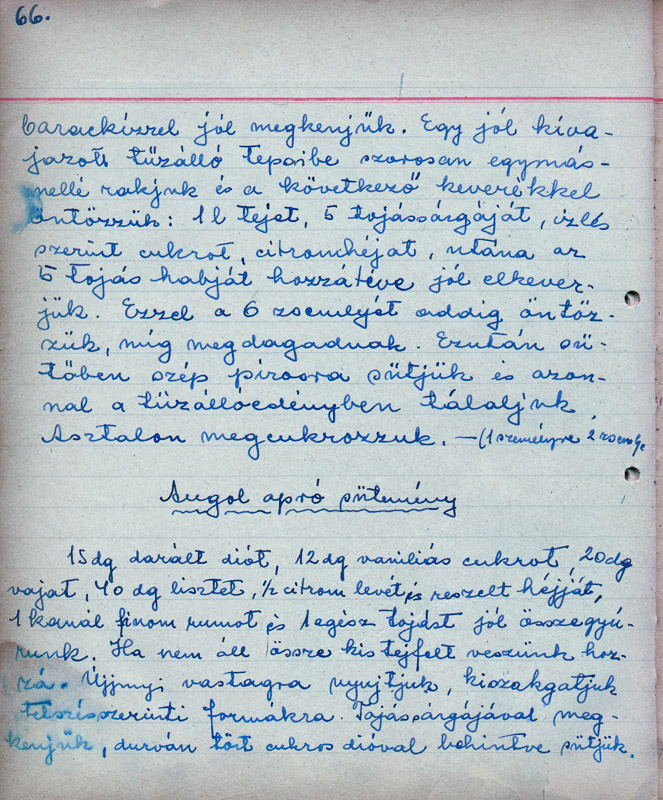 66.
barackízzel jól megkenjük. Egy jól kiva-
jazott tűzálló tepsibe szorosan egymás-
mellé rakjuk és a következő keverékkel
öntözzük: 1 l tejet, 5 tojássárgáját, izlés
szerint cukrot, citromhéjat, utána az
5 tojás habját hozzátéve jól elkever-
jük. Ezzel a 6 zsemlyét addig öntöz-
zük, míg megdagadnak. Ezután sü-
tőben szép pirosra sütjük és azon-
nal a tűzállóedényben tálaljuk.
Asztalon megcukrozzuk. — (1 személyre 2 zsemlye
Angol apró sütemény
15 dg darált diót, 12 dg vaniliás cukrot, 20 dg
vajat, 40 dg lisztet, 1/2 citrom levét és reszelt héjját,
1 kanál finom rumot és 1 egész tojást jól összegyú-
runk. Ha nem áll össze kis tejfelt veszünk hoz-
zá. Újjnyi vastagra nyujtjuk, kiszakgatjuk
tetszésszerinti formákra. Tojássárgájával meg-
kenjük, durván tört cukros dióval behintve sütjük.